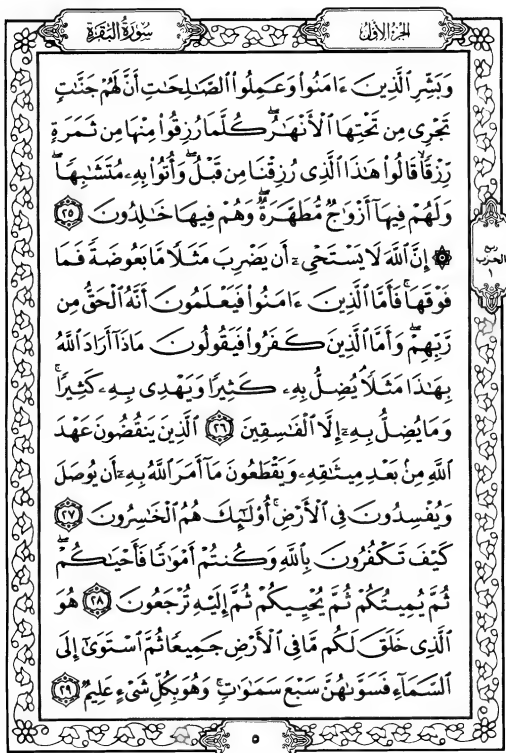 سُورَةُ الْبَقَرَةِ
الجُزْءُ الأَوَّلُ
وَبَشِّرِ الَّذِينَ ءَامَنُوا۟ وَعَمِلُوا۟ الصَّـٰلِحَـٰتِ أَنَّ لَهُمْ جَنَّـٰتٍ
تَجْرِى مِن تَحْتِهَا الْأَنْهَـٰرُ ۖ كُلَّمَا رُزِقُوا۟ مِنْهَا مِن ثَمَرَةٍ
رِّزْقًا ۙ قَالُوا۟ هَـٰذَا الَّذِى رُزِقْنَا مِن قَبْلُ ۖ وَأُتُوا۟ بِهِۦ مُتَشَـٰبِهًا ۖ
وَلَهُمْ فِيهَآ أَزْوَٰجٌ مُّطَهَّرَةٌ ۖ وَهُمْ فِيهَا خَـٰلِدُونَ ٢٥
۞ إِنَّ اللَّهَ لَا يَسْتَحْىِۦٓ أَن يَضْرِبَ مَثَلًا مَّا بَعُوضَةً فَمَا
فَوْقَهَا ۚ فَأَمَّا الَّذِينَ ءَامَنُوا۟ فَيَعْلَمُونَ أَنَّهُ الْحَقُّ مِن
رَّبِّهِمْ ۖ وَأَمَّا الَّذِينَ كَفَرُوا۟ فَيَقُولُونَ مَاذَآ أَرَادَ اللَّهُ
بِهَـٰذَا مَثَلًا ۘ يُضِلُّ بِهِۦ كَثِيرًا وَيَهْدِى بِهِۦ كَثِيرًا ۚ
وَمَا يُضِلُّ بِهِۦٓ إِلَّا الْفَـٰسِقِينَ ٢٦ الَّذِينَ يَنقُضُونَ عَهْدَ
اللَّهِ مِنۢ بَعْدِ مِيثَـٰقِهِۦ وَيَقْطَعُونَ مَآ أَمَرَ اللَّهُ بِهِۦٓ أَن يُوصَلَ
وَيُفْسِدُونَ فِى الْأَرْضِ ۚ أُو۟لَـٰٓئِكَ هُمُ الْخَـٰسِرُونَ ٢٧
كَيْفَ تَكْفُرُونَ بِاللَّهِ وَكُنتُمْ أَمْوَٰتًا فَأَحْيَـٰكُمْ ۖ
ثُمَّ يُمِيتُكُمْ ثُمَّ يُحْيِيكُمْ ثُمَّ إِلَيْهِ تُرْجَعُونَ ٢٨ هُوَ
الَّذِى خَلَقَ لَكُم مَّا فِى الْأَرْضِ جَمِيعًا ثُمَّ اسْتَوَىٰٓ إِلَى
السَّمَآءِ فَسَوَّىٰهُنَّ سَبْعَ سَمَـٰوَٰتٍ ۚ وَهُوَ بِكُلِّ شَىْءٍ عَلِيمٌ ٢٩
ربع
الحزب
١
٥